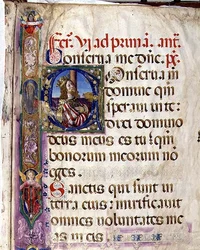 Fer. VI ad primā. ant.
Conserua me dn̄e. ps.
Conserua me
domine qm̄
speraui in te:
dixi domino
deus meus es tu: qm̄
bonorum meorum nō
eges.
Sanctis qui sunt in
terra eius: mirificauit
omnes voluntates me
as in eis.